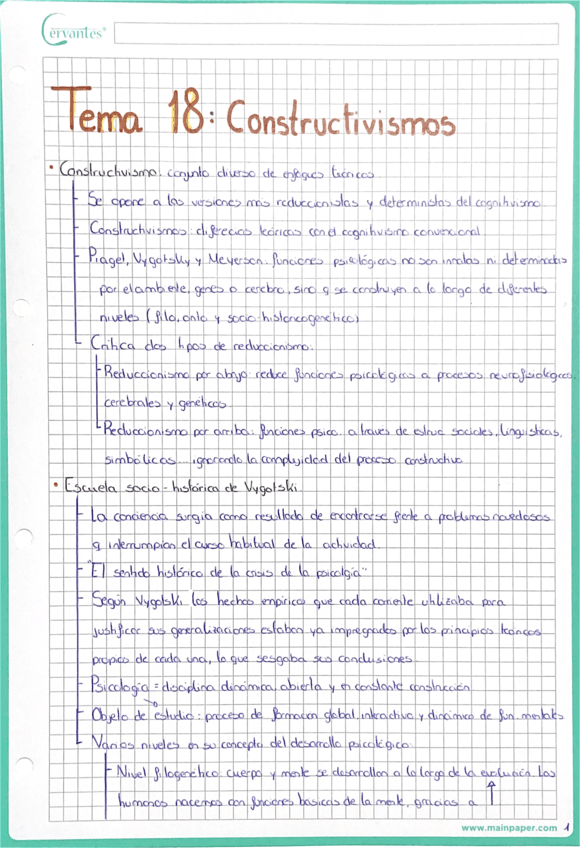 Cervantes®
Tema 18: Constructivismos
• Constructivismo: conjunto diverso de enfoques teóricos.
Se opone a las versiones mas reduccionistas y deterministas del cognitivismo
Constructivismos: diferecias teóricas con el cognitivismo convencional
Piaget, Vygotsky y Meyerson: funciones psicológicas no son innatas ni determinadas
por el ambiente, genes o cerebro, sino q se construyen a lo largo de diferentes
niveles (filo, onto y socio-historicogenético)
Critica dos tipos de reduccionismo:
Reduccionismo por abajo: reduce funciones psicológicas a procesos neurofisiológicos,
cerebrales y genéticos.
Reduccionismo por arriba: funciones psico. a traves de estruc sociales, linguisticas,
simbólicas... ignorando la complejidad del proceso constructivo
• Escuela socio-histórica de Vygotski
La conciencia surgia como resultado de encontrarse frente a problemas novedosos
q interrumpian el curso habitual de la actividad.
"El sentido histórico de la crisis de la psicolgía"
Según Vygotski los hechos empíricos que cada corriente utilizaba para
justificar sus generalizaciones estaban ya impregnados por los principios teoricos
propios de cada una, lo que sesgaba sus conclusiones
Psicología = disciplina dinámica, abierta y en constante construcción
Objeto de estudio: proceso de formacion global, interactivo y dinámico de fun. mentales
Varios niveles en su concepto del desarrollo psicológico
Nivel filogenetico: cuerpo y mente se desarrollan a lo largo de la evolución. Los
humanos nacemos con funciones basicas de la mente, gracias a ↑
www.mainpaper.com 1